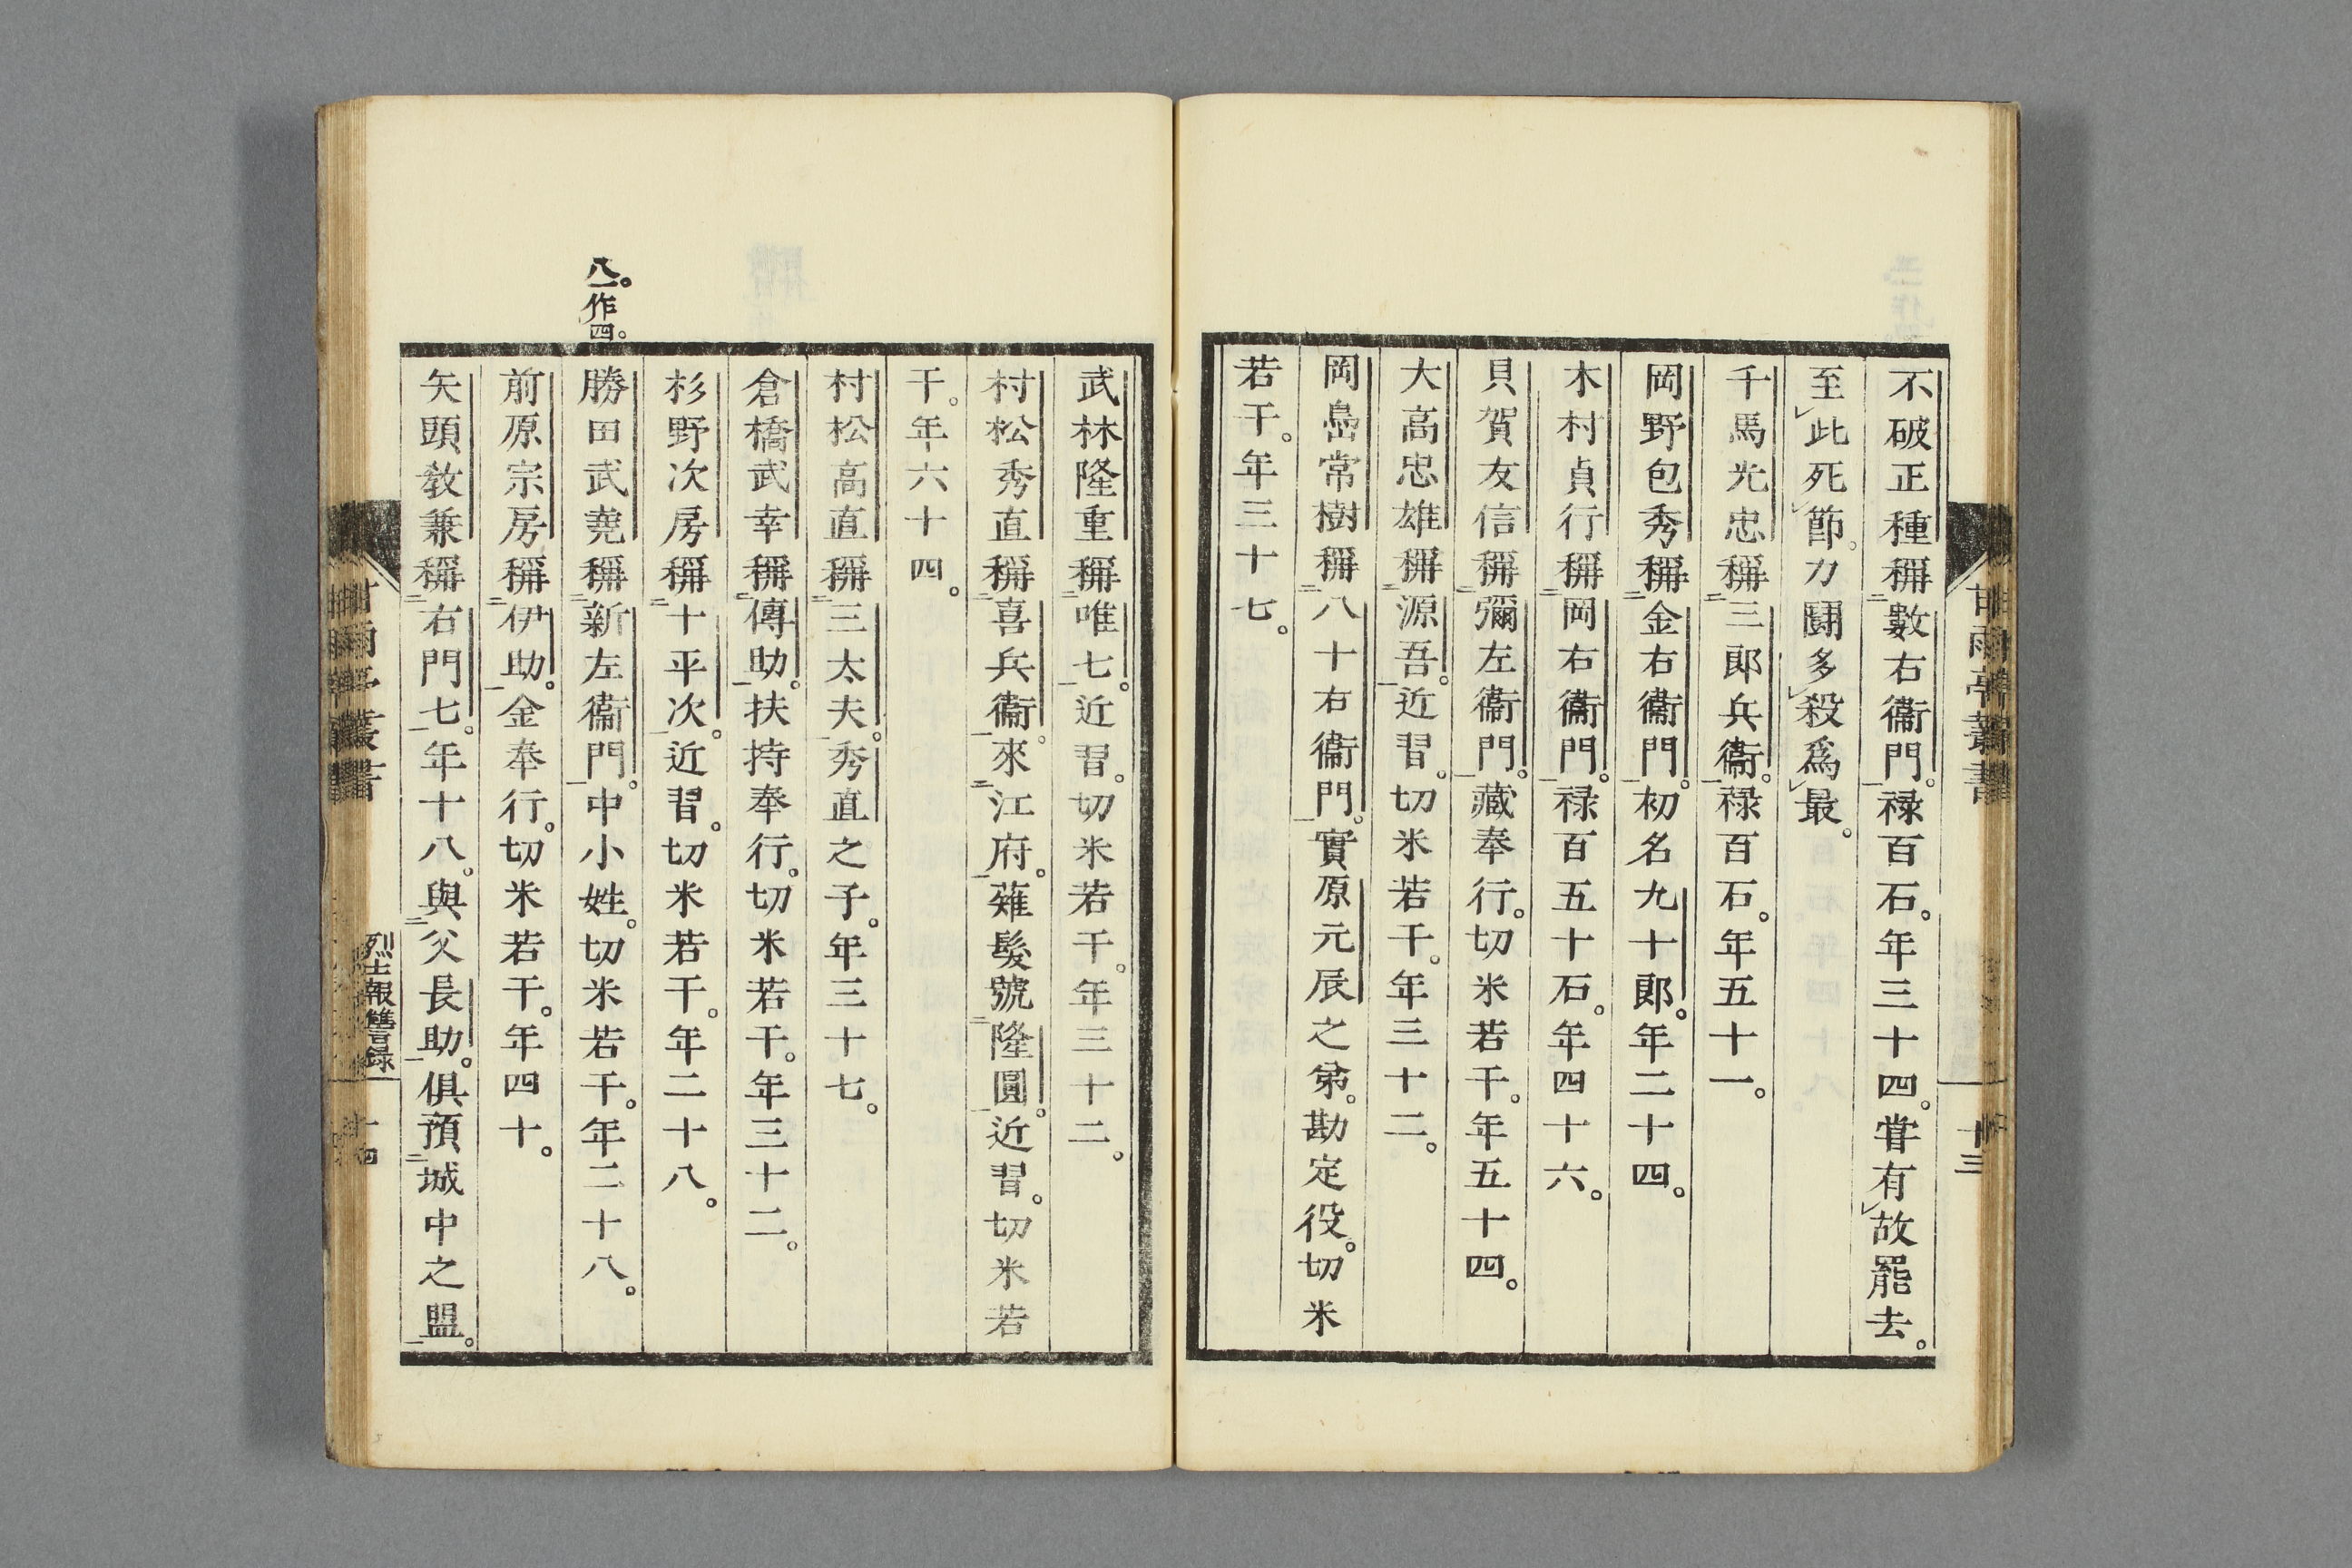 不破正種稱數右衞門。祿百石。年三十四。甞有故罷去。
至此死節。力鬭多殺爲最。
千馬光忠稱三郎兵衞。祿百石。年五十一。
岡野包秀稱金右衞門。初名九十郎。年二十四。
木村貞行稱岡右衞門。祿百五十石。年四十六。
貝賀友信稱彌左衞門。藏奉行。切米若干。年五十四。
大高忠雄稱源吾。近習。切米若干。年三十二。
岡嶌常樹稱八十右衞門。實原元辰之弟。勘定役。切米
若干。年三十七。
甘雨亭叢書
十三
武林隆重稱唯七。近習。切米若干。年三十二。
村松秀直稱喜兵衞。來江府。薙髮號隆圓。近習。切米若
干。年六十四。
村松高直稱三太夫。秀直之子。年三十七。
倉橋武幸稱傳助。扶持奉行。切米若干。年三十二。
杉野次房稱十平次。近習。切米若干。年二十八。
八。一作四。
勝田武堯稱新左衞門。中小姓。切米若干。年二十八。
前原宗房稱伊助。金奉行。切米若干。年四十。
矢頭敎兼稱右門七。年十八。與父長助。俱預城中之盟。
甘雨亭叢書
烈士報讐錄
十四